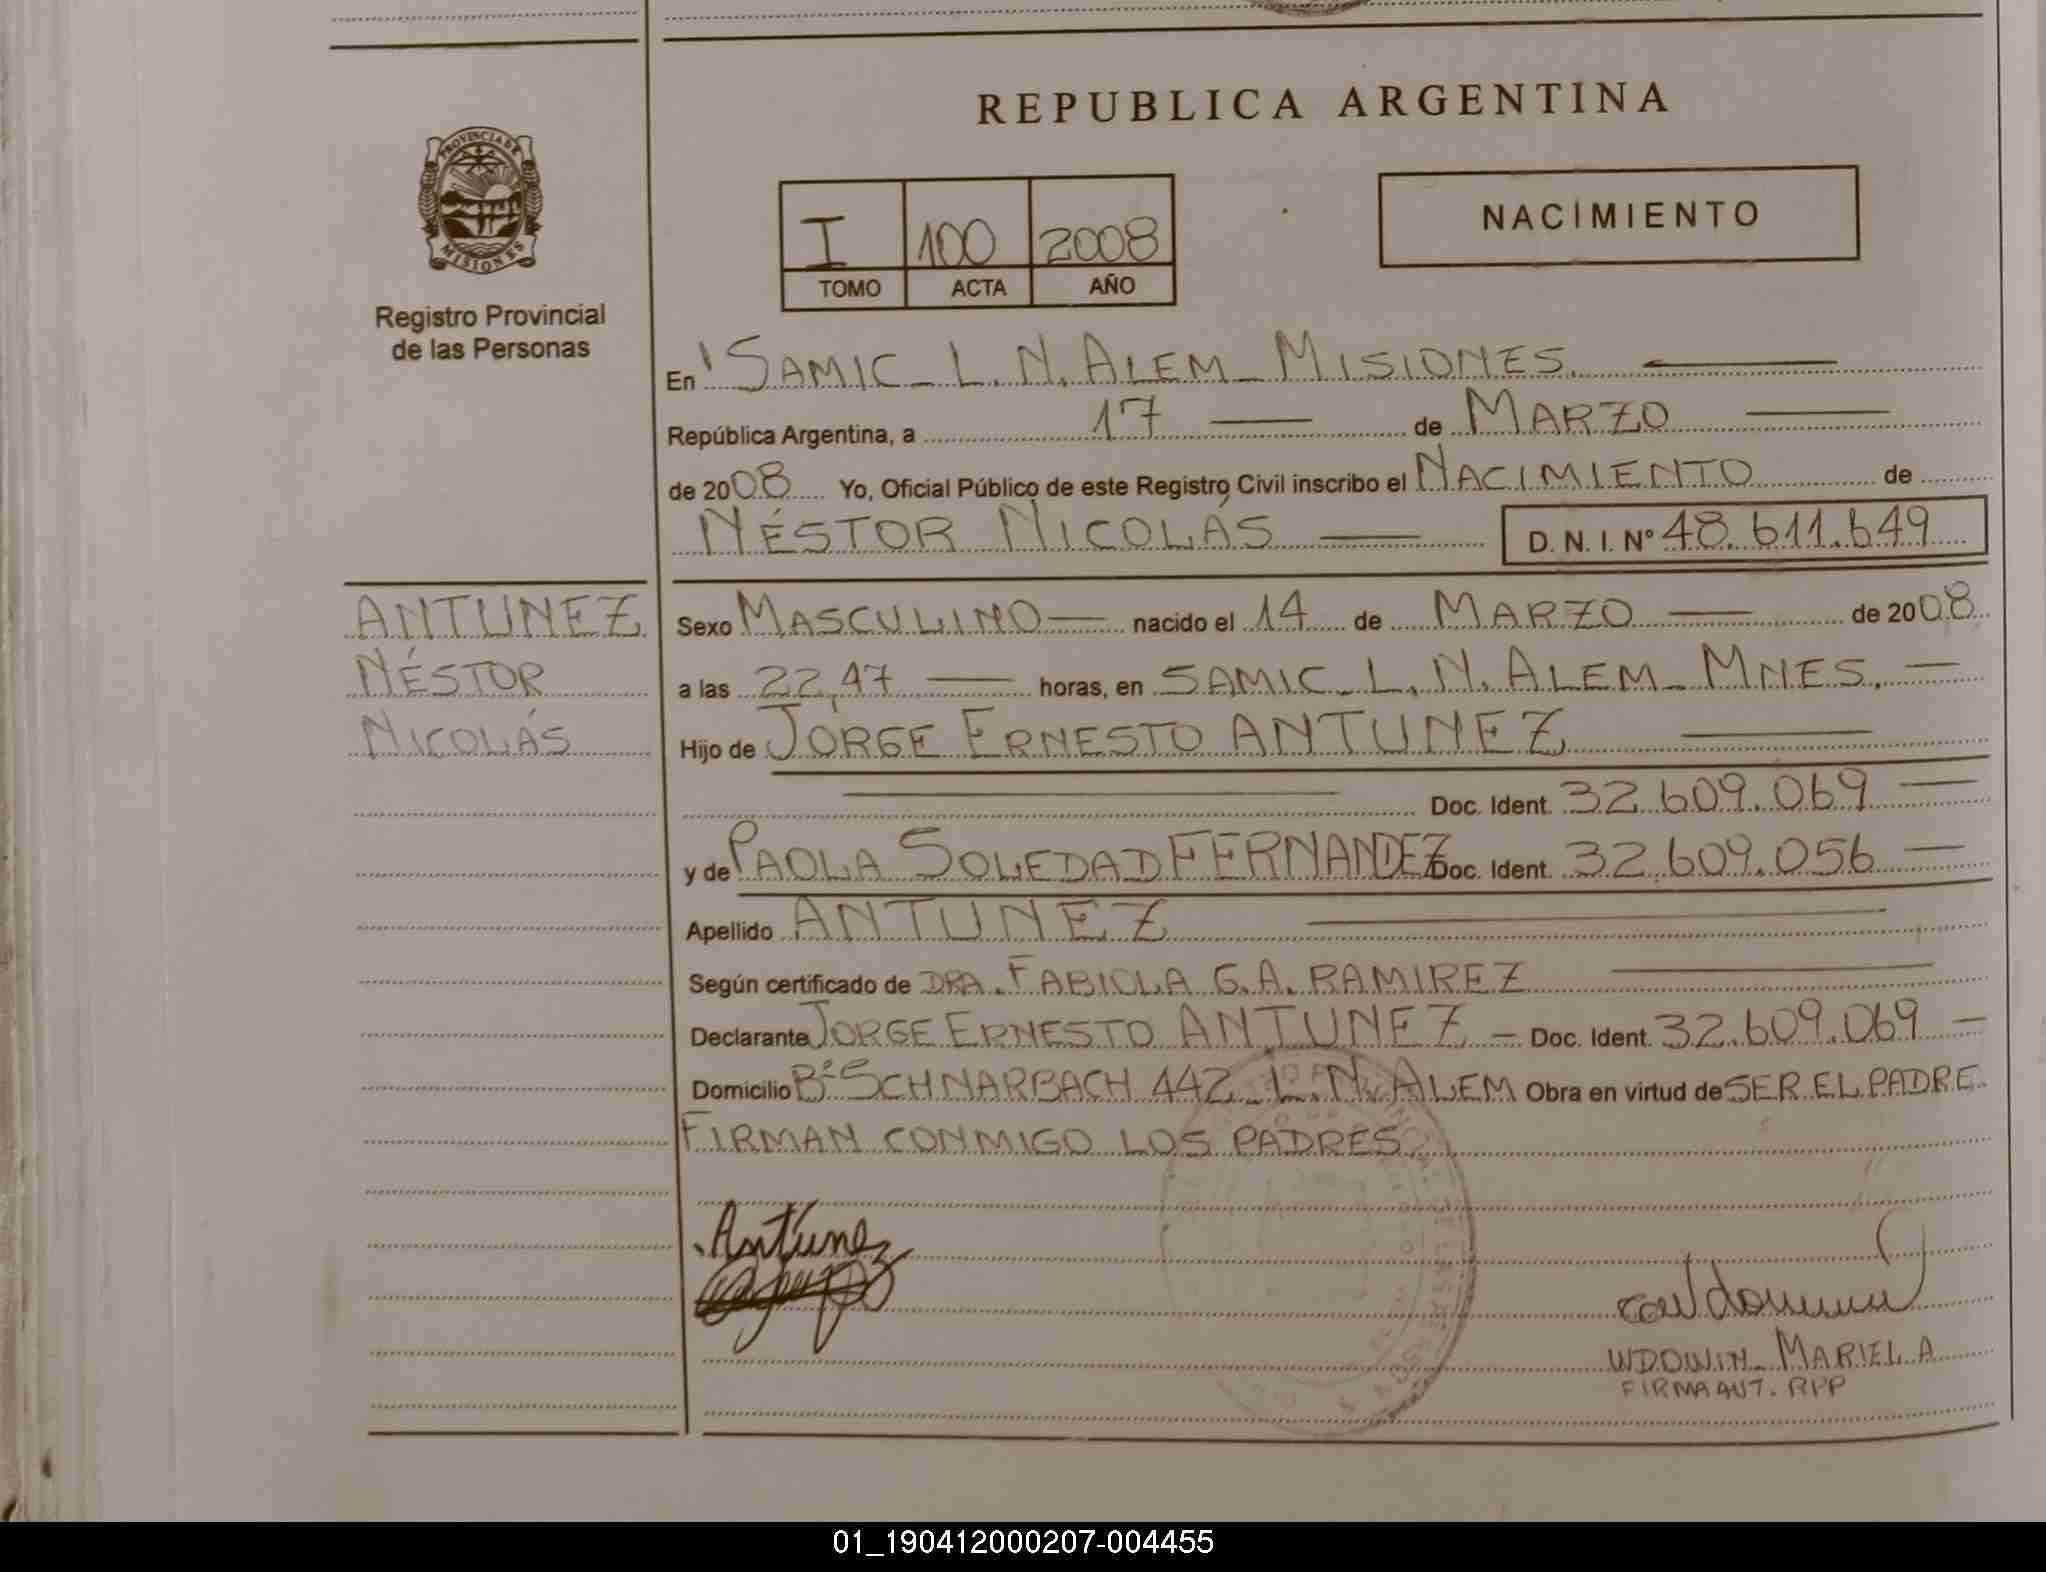 REPUBLICA ARGENTINA
PROVINCIA DE
MISIONES
Registro Provincial
de las Personas
I 100 2008
TOMO ACTA AÑO
NACIMIENTO
En SAMIC - L. N. ALEM - MISIONES.
República Argentina, a 17 de MARZO
de 2008 Yo, Oficial Público de este Registro Civil inscribo el NACIMIENTO de
NÉSTOR NICOLÁS D. N. I. Nº 48.611.649
ANTUNEZ
NÉSTOR
NICOLÁS
Sexo MASCULINO nacido el 14 de MARZO de 2008
a las 22,47 horas, en SAMIC - L. N. ALEM - MNES.
Hijo de JORGE ERNESTO ANTUNEZ
Doc. Ident. 32.609.069
y de PAOLA SOLEDAD FERNANDEZ Doc. Ident. 32.609.056
Apellido ANTUNEZ
Según certificado de DRA. FABIOLA G.A. RAMIREZ
Declarante JORGE ERNESTO ANTUNEZ - Doc. Ident. 32.609.069
Domicilio Bº SCHNARBACH 442 L. N. ALEM Obra en virtud de SER EL PADRE.
FIRMAN CONMIGO LOS PADRES.
Antunez
WDOWIN - MARIEL A
FIRMA AUT. RPP
01_190412000207-004455